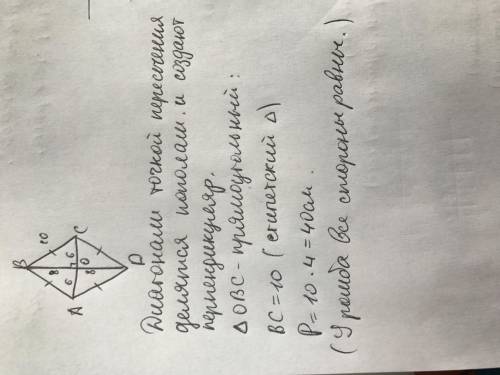 B
10
8
6
6
C
A
O
8
D
Диагонали точкой пересечения
делятся пополам и создают
перпендикуляр.
△OBC - прямоугольный:
BC = 10 (египетский △)
P = 10 · 4 = 40 см.
(У ромба все стороны равны.)